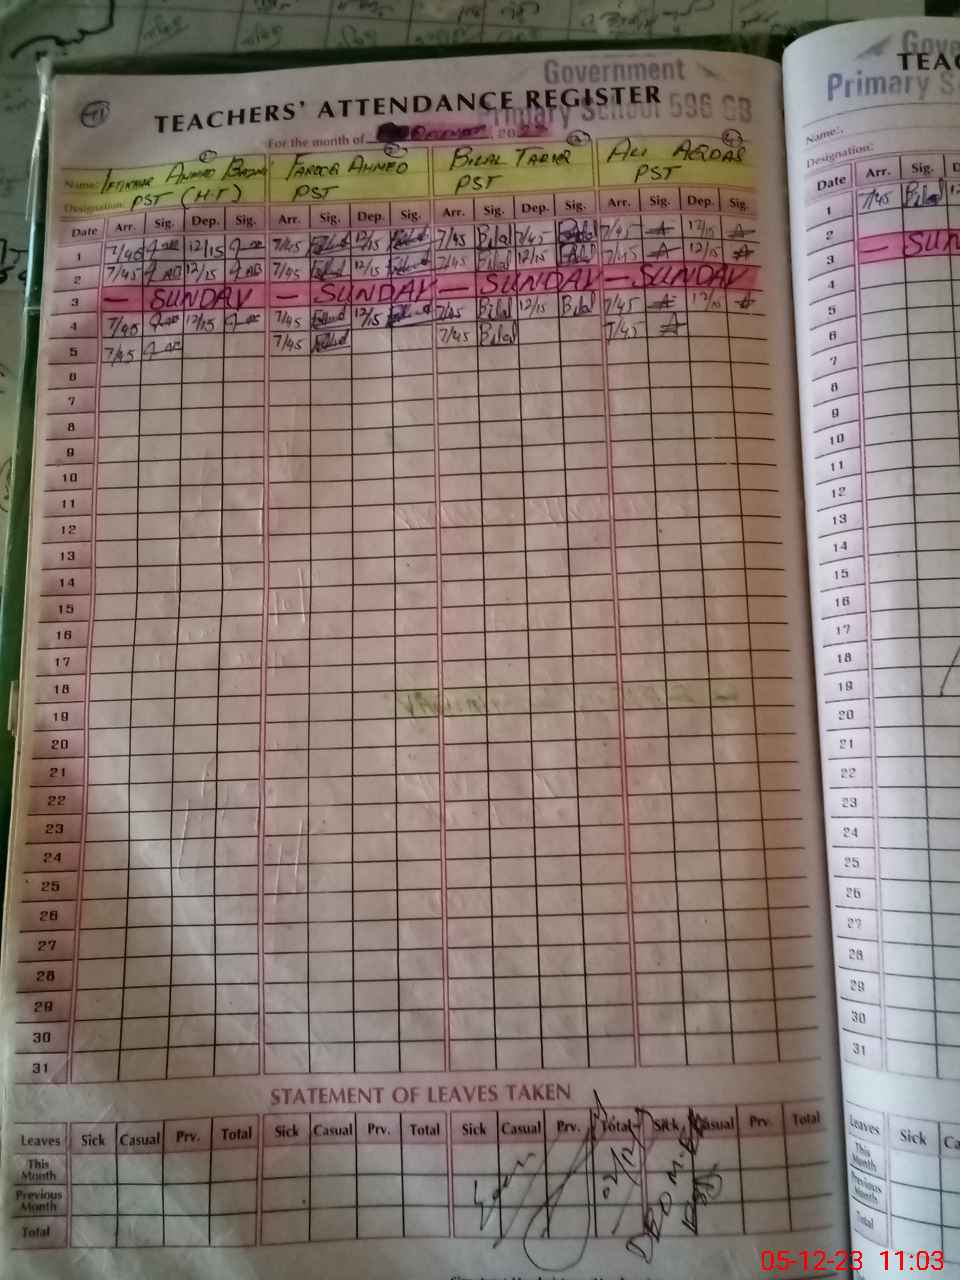 Government
Primary School 596 GB
41
TEACHERS' ATTENDANCE REGISTER
For the month of December, 2023
1 2 3 4
Name: Iftikhar Ahmed Farooq Ahmed Bilal Tariq Ali Aqdas
Designation: PST (H.T) PST PST PST
Date Arr. Sig. Dep. Sig. Arr. Sig. Dep. Sig. Arr. Sig. Dep. Sig. Arr. Sig. Dep. Sig.
1 7/45 12/15 7/45 12/15 7/45 Bilal 7/45 7/45 12/15
2 7/45 12/15 7/45 12/15 7/45 Bilal 12/15 7/45 12/15
3 — SUNDAY — SUNDAY — SUNDAY — SUNDAY
4 7/45 12/15 7/45 12/15 7/45 Bilal 12/15 Bilal 7/45 12/15
5 7/45 7/45 7/45 Bilal 7/45
6
7
8
9
10
11
12
13
14
15
16
17
18
19
20
21
22
23
24
25
26
27
28
29
30
31
STATEMENT OF LEAVES TAKEN
Leaves Sick Casual Prv. Total Sick Casual Prv. Total Sick Casual Prv. Total Sick Casual Prv. Total
This
Month
Previous
Month
Total
Gove
TEAC
Primary S
Name:
Designation:
Date Arr. Sig. D
1 7/45 Bilal 12
2
3 — SUN
4
5
6
7
8
9
10
11
12
13
14
15
16
17
18
19
20
21
22
23
24
25
26
27
28
29
30
31
Leaves Sick Ca
This
Month
Previous
Month
Total
05-12-23 11:03